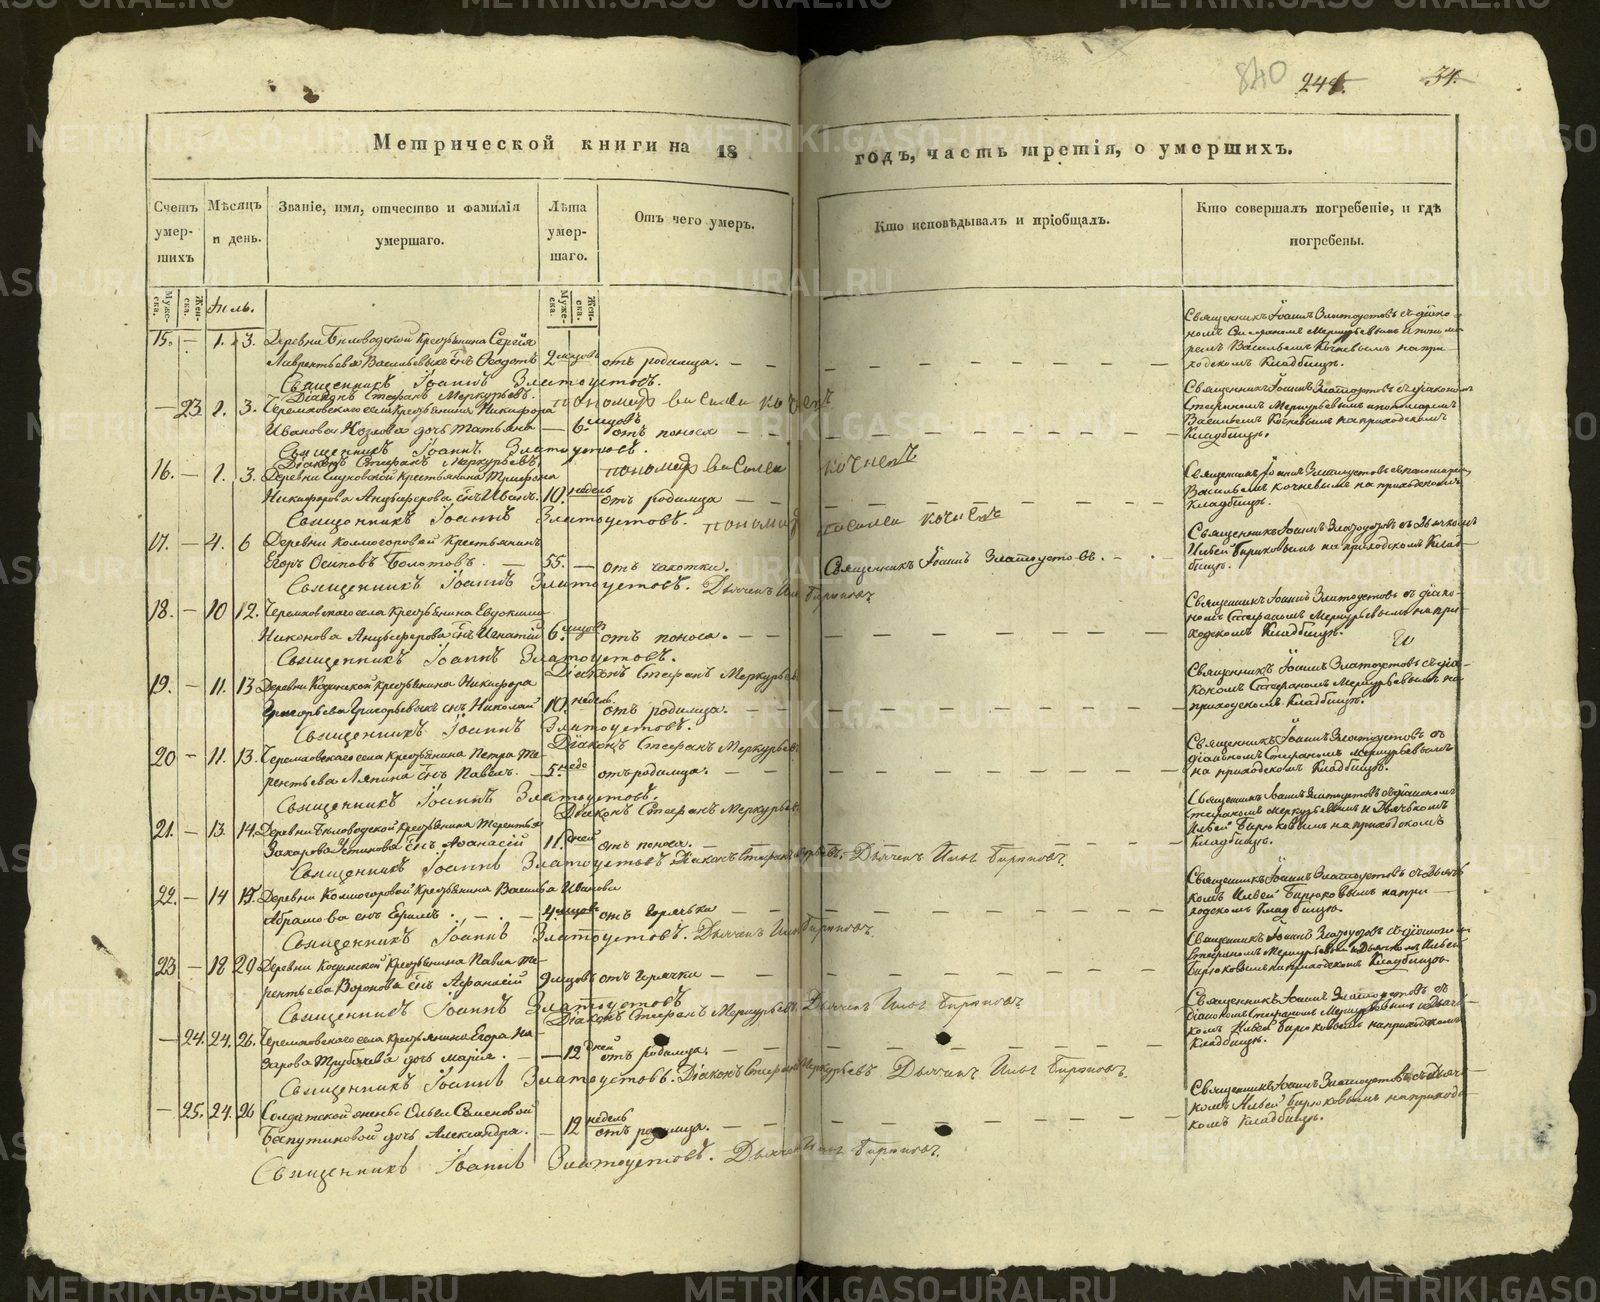 840 244. 34.
Метрической книги на 18 годъ, часть третія, о умершихъ.
Счетъ умер-шихъ
Мѣсяцъ и день.
Званіе, имя, отчество и фамилія умершаго.
Лѣта умер-шаго.
Отъ чего умеръ.
Кто исповѣдывалъ и пріобщалъ.
Кто совершалъ погребеніе, и гдѣ погребены.
Муже-ска. Жен-ска.
Муже-ска. Жен-ска.
15. — 1. 3. Деревни Бѣловодской Крестьянина Сергѣя
Лаврентьева Васильевыхъ снъ Ѳеодотъ 2 мцовъ отъ родимца.
Священникъ Іоаннъ Златоустовъ.
Діаконъ Стефанъ Меркурьевъ. пономарь василеи кочневъ
Священникъ Іоаннъ Златоустовъ съ діако-
номъ Стефаномъ Меркурьевымъ и поно-
ремъ Васильемъ Кочневымъ на при-
ходскомъ Кладбищѣ.
— 23 2. 3. Черемховскаго села Крестьянина Никифора
Иванова Козлова дочь Татьяна — 6 мцовъ отъ поноса
Священникъ Іоаннъ Златоустовъ.
Діаконъ Стефанъ Меркурьевъ. пономарь василеи кочневъ
Священникъ Іоаннъ Златоустовъ съ діакономъ
Стефаномъ Меркурьевымъ и пономаремъ
Васильемъ Кочневымъ на приходскомъ
Кладбищѣ.
16. — 1. 3. Крестьянина Трифона
Никифорова Анцыферова снъ Иванъ. 10. недель отъ родимца
Священникъ Іоаннъ Златоустовъ. пономарь василеи кочневъ
Священникъ Іоаннъ Златоустовъ с пономаремъ
Васильемъ Кочневымъ на приходскомъ
Кладбищѣ.
17. — 4. 6 Деревни Колмогоровой Крестьянинъ
Егоръ Осиповъ Болотовъ. — 55. — отъ чахотки. Священникъ Іоаннъ Златоустовъ.
Священникъ Іоаннъ Златоустовъ. Дьячекъ Илья Бирюковъ
Священникъ Іоаннъ Златоустовъ съ Дьячкомъ
Ильей Бирюковымъ на приходскомъ Клад-
бищѣ.
18. — 10 12. Черемховскаго села Крестьянина Евдокима
Никонова Анцыферова снъ Игнатій 6. мцовъ отъ поноса.
Священникъ Іоаннъ Златоустовъ.
Діаконъ Стефанъ Меркурьевъ
Священникъ Іоаннъ Златоустовъ съ діако-
номъ Стефаномъ Меркурьевымъ на при-
ходскомъ Кладбищѣ.
19. — 11. 13 Деревни Кодинской Крестьянина Никифора
Григорьева Григорьевыхъ снъ Николай 10. недель. отъ родимца.
Священникъ Іоаннъ Златоустовъ.
Діаконъ Стефанъ Меркурьевъ
Священникъ Іоаннъ Златоустовъ съ діа-
кономъ Стефаномъ Меркурьевымъ на
приходскомъ Кладбищѣ.
20 — 11. 13. Черемховскаго села Крестьянина Петра Те-
рентьева Ляпина снъ Павелъ. — 5. неде отъ родимца.
Священникъ Іоаннъ Златоустовъ.
Діаконъ Стефанъ Меркурьевъ
Священникъ Іоаннъ Златоустовъ съ
діакономъ Стефаномъ Меркурьевымъ
на приходскомъ Кладбищѣ.
21. — 13. 14. Деревни Бѣловодской Крестьянина Терентья
Захарова Устинова снъ Аѳанасій 11. дней отъ поноса.
Священникъ Іоаннъ Златоустовъ Діаконъ Стефанъ Меркурьевъ. Дьячекъ Илья Бирюковъ
Священникъ Іоаннъ Златоустовъ съ діакономъ
Стефаномъ Меркурьевымъ и Дьячькомъ
Ильей Бирюковымъ на приходскомъ
Кладбищѣ.
22. — 14 15. Деревни Колмогоровой Крестьянина Василья Иванова
Абрамова снъ Ефимъ. — 4. мцовъ отъ горячьки
Священникъ Іоаннъ Златоустовъ. Дьячекъ Илья Бирюковъ
Священникъ Іоаннъ Златоустовъ съ Дьячь-
комъ Ильей Бирюковымъ на при-
ходскомъ Кладбищѣ.
23 — 18 20 Деревни Кодинской Крестьянина Павла Те-
рентьева Воронова снъ Аѳанасій 9 мцовъ отъ горячки
Священникъ Іоаннъ Златоустовъ
Діаконъ Стефанъ Меркурьевъ. Дьячекъ Илья Бирюковъ
Священникъ Іоаннъ Златоустовъ съ діакономъ
Стефаномъ Меркурьевымъ и Дьячкомъ Ильей
Бирюковымъ на приходскомъ Кладбищѣ
— 24. 24. 26. Черемховскаго села Крестьянина Егора На-
зарова Трубачева дочь Марія. — 12 дней отъ родимца.
Священникъ Іоаннъ Златоустовъ. Діаконъ Стефанъ Меркурьевъ Дьячекъ Илья Бирюковъ.
Священникъ Іоаннъ Златоустовъ съ
діакономъ Стефаномъ Меркурьевымъ и Дьяч-
комъ Ильей Бирюковымъ на приходскомъ
Кладбищѣ.
— 25. 24. 26 Солдатской жены Ольги Семеновой
дочь Александра. — 12 недель отъ родимца.
Священникъ Іоаннъ Златоустовъ. Дьячекъ Илья Бирюковъ.
Священникъ Іоаннъ Златоустовъ съ Дьяч-
комъ Ильей Бирюковымъ на приходс-
комъ Кладбищѣ.
METRIKI.GASO-URAL.RU